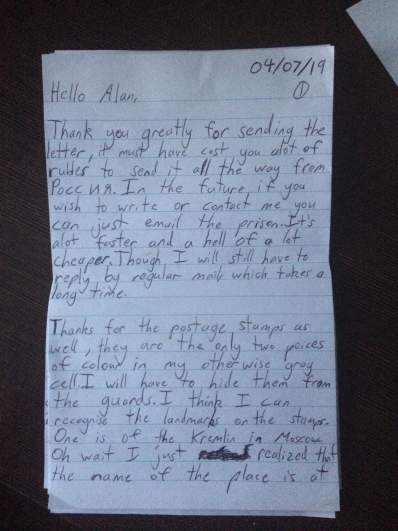 04/07/19
①
Hello Alan,
Thank you greatly for sending the
letter, it must have cost you alot of
rubles to send it all the way from
Росс ия. In the future, if you
wish to write or contact me you
can just email the prison. It's
alot faster and a hell of a lot
cheaper. Though I will still have to
reply by regular mail which takes a
long time.
Thanks for the postage stamps as
well, they are the only two peices
of colour in my otherwise gray
cell. I will have to hide them from
the guards. I think I can
recognise the landmarks on the stamps.
One is of the Kremlin in Moscow.
Oh wait I just realized that
the name of the place is at